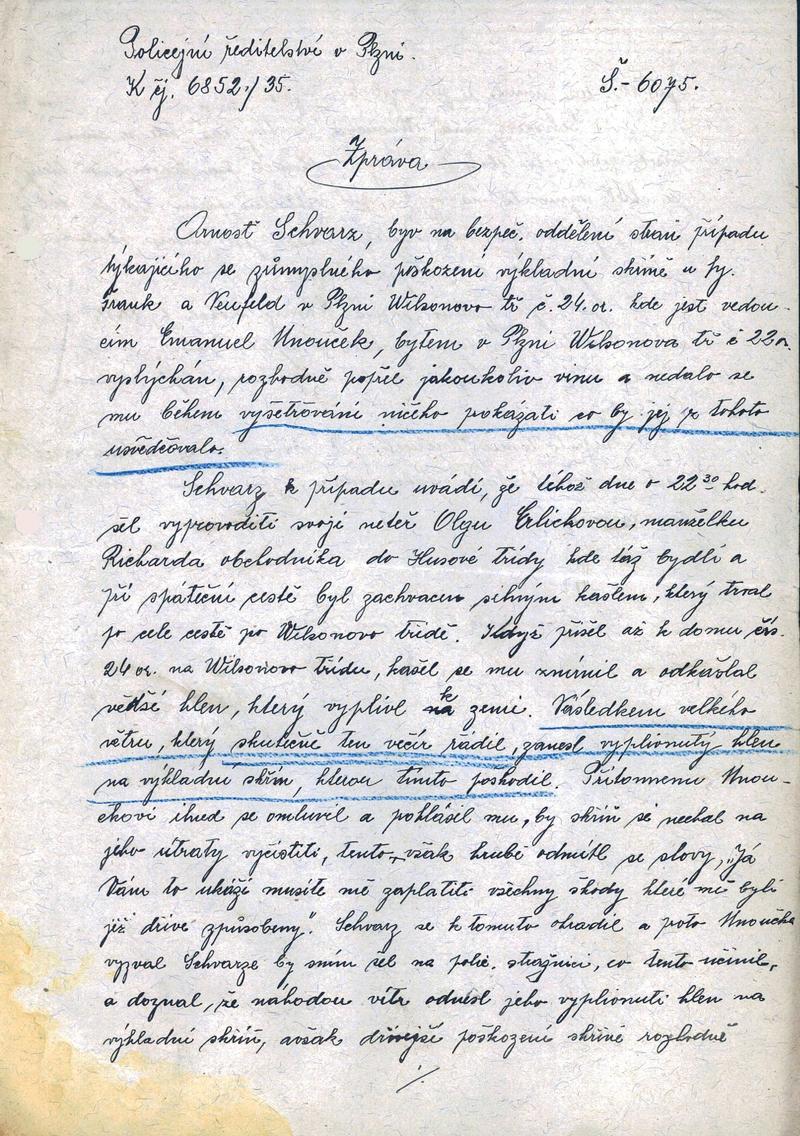 Policejní ředitelství v Plzni.
K čj. 6852./35. Š.-6075.
Zpráva
Arnošt Schvarz, byv na bezpeč. oddělení stran případu
týkajícího se zůmyslného poškození výkladní skříně u fy.
Frank a Neufeld v Plzni Wilsonovo tř č. 24. or. kde jest vedou-
cím Emanuel Unouček, bytem v Plzni Wilsonova tř č 22 or.
vyslýchán, rozhodně popřel jakoukoliv vinu a nedalo se
mu během vyšetřování ničeho pokázati co by jej z tohoto
usvědčovalo.
Schvarz k případu uvádí, že téhož dne o 22 30 hod.
šel vyprovoditi svojí neteř Olgu Erlichovou, manželku
Richarda obchodníka do Husové třídy kde táž bydlí a
při spáteční cestě byl zachvacen silným kašlem, který trval
po cele cestě po Wilsonovo třídě. Když přišel až k domu čís.
24 or. na Wilsonovo třídu, kašel se mu zmínil a odkašlal
vedší hlen, který vyplivl k zemi. Následkem velkého
větru, který skutečně ten večír rádil, zanesl vyplionutý hlen
na výkladní skříň, kterou tímto poškodil. Přítomnemu Unou-
čkovi ihned se omluvil a pohlásil mu, by skříň si nechal na
jeho útraty vyčístiti, tento však hrubě odmítl se slovy, „Já
Vám to ukáži musíte mě zaplatiti všechny škody které mě byli
již dříve způsobeny". Schvarz se k tomuto ohradil a poto Unoučka
vyzval Schvarze by sním šel na polic. strážnici, co tento učinil,
a doznal, že náhodou vítr odnesl jeho vyplionuti hlen na
výkladní skříň, avšak dřívejší poškození skříně rozhodně
./.